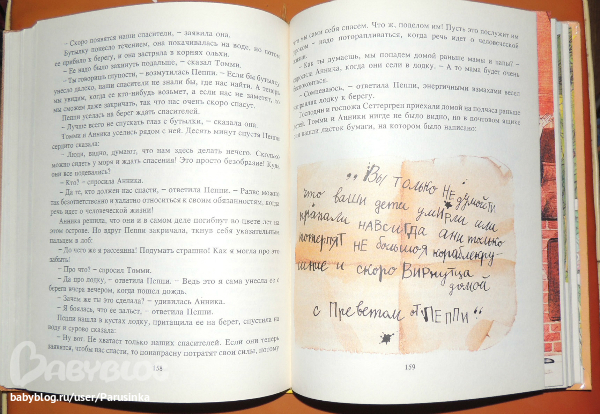 – Скоро появятся наши спасители, – заявила она.
Бутылку понесло течением, она покачивалась на воде, но потом
ее прибило к берегу, и она застряла в корнях ольхи.
– Ее надо было закинуть подальше, – сказал Томми.
– Ты говоришь глупости, – возмутилась Пеппи. – Если бы бутылку
унесло далеко, наши спасители не знали бы, где нас найти. А теперь
мы увидим, когда ее кто-нибудь возьмет, а если нас не заметят, то
мы сможем даже закричать, так что нас очень скоро спасут.
Пеппи уселась на берег ждать спасителей.
– Лучше всего не спускать глаз с бутылки, – сказала она.
Томми и Анника уселись рядом с ней. Десять минут спустя Пеппи
сердито сказала:
– Люди, видно, думают, что нам здесь делать нечего. Сколько
можно сидеть у моря и ждать спасения! Это просто безобразие! Куда
они все подевались?
– Кто? – спросила Анника.
– Да те, кто должен нас спасти, – ответила Пеппи. – Разве можно
так безответственно и халатно относиться к своим обязанностям, когда
речь идет о человеческой жизни!
Анника решила, что они и в самом деле погибнут во цвете лет на
этом острове. Но вдруг Пеппи закричала, ткнув себя указательным
пальцем в лоб:
– До чего же я рассеянна! Подумать страшно! Как я могла про это
забыть!
– Про что? – спросил Томми.
– Да про лодку, – ответила Пеппи. – Ведь это я сама унесла ее с
берега вчера вечером, когда пошел дождь.
– Зачем же ты это сделала? – удивилась Анника.
– Я боялась, что ее зальет, – ответила Пеппи.
Пеппи нашла в кустах лодку, притащила ее на берег, спустила на
воду и сурово сказала:
– Ну вот. Не хватает только наших спасателей. Если они теперь
заявятся, чтобы нас спасти, то понапрасну потратят свои силы, потому
158
мы сами себя спасем. Что ж, поделом им! Пусть это послужит им
надо поторапливаться, когда речь идет о человеческой
– Как ты думаешь, мы попадем домой раньше мамы и папы? –
Анника, когда они сели в лодку. – А то мама будет очень
– Сомневаюсь, – ответила Пеппи, энергичными взмахами весел
лодку к берегу.
Господин и госпожа Сеттергрен приехали домой на полчаса раньше
Томми и Анники нигде не было видно, но в почтовом ящике
листок бумаги, на котором было написано:
„Вы только не думойти
что ваши дети умирли или
прапали навсигда ани только
потерпят не большоя кораблекру-
шение и скоро вирнутца
домой
с Приветом от ПЕППИ“
159
BABYBLOG
babyblog.ru/user/Parusinka